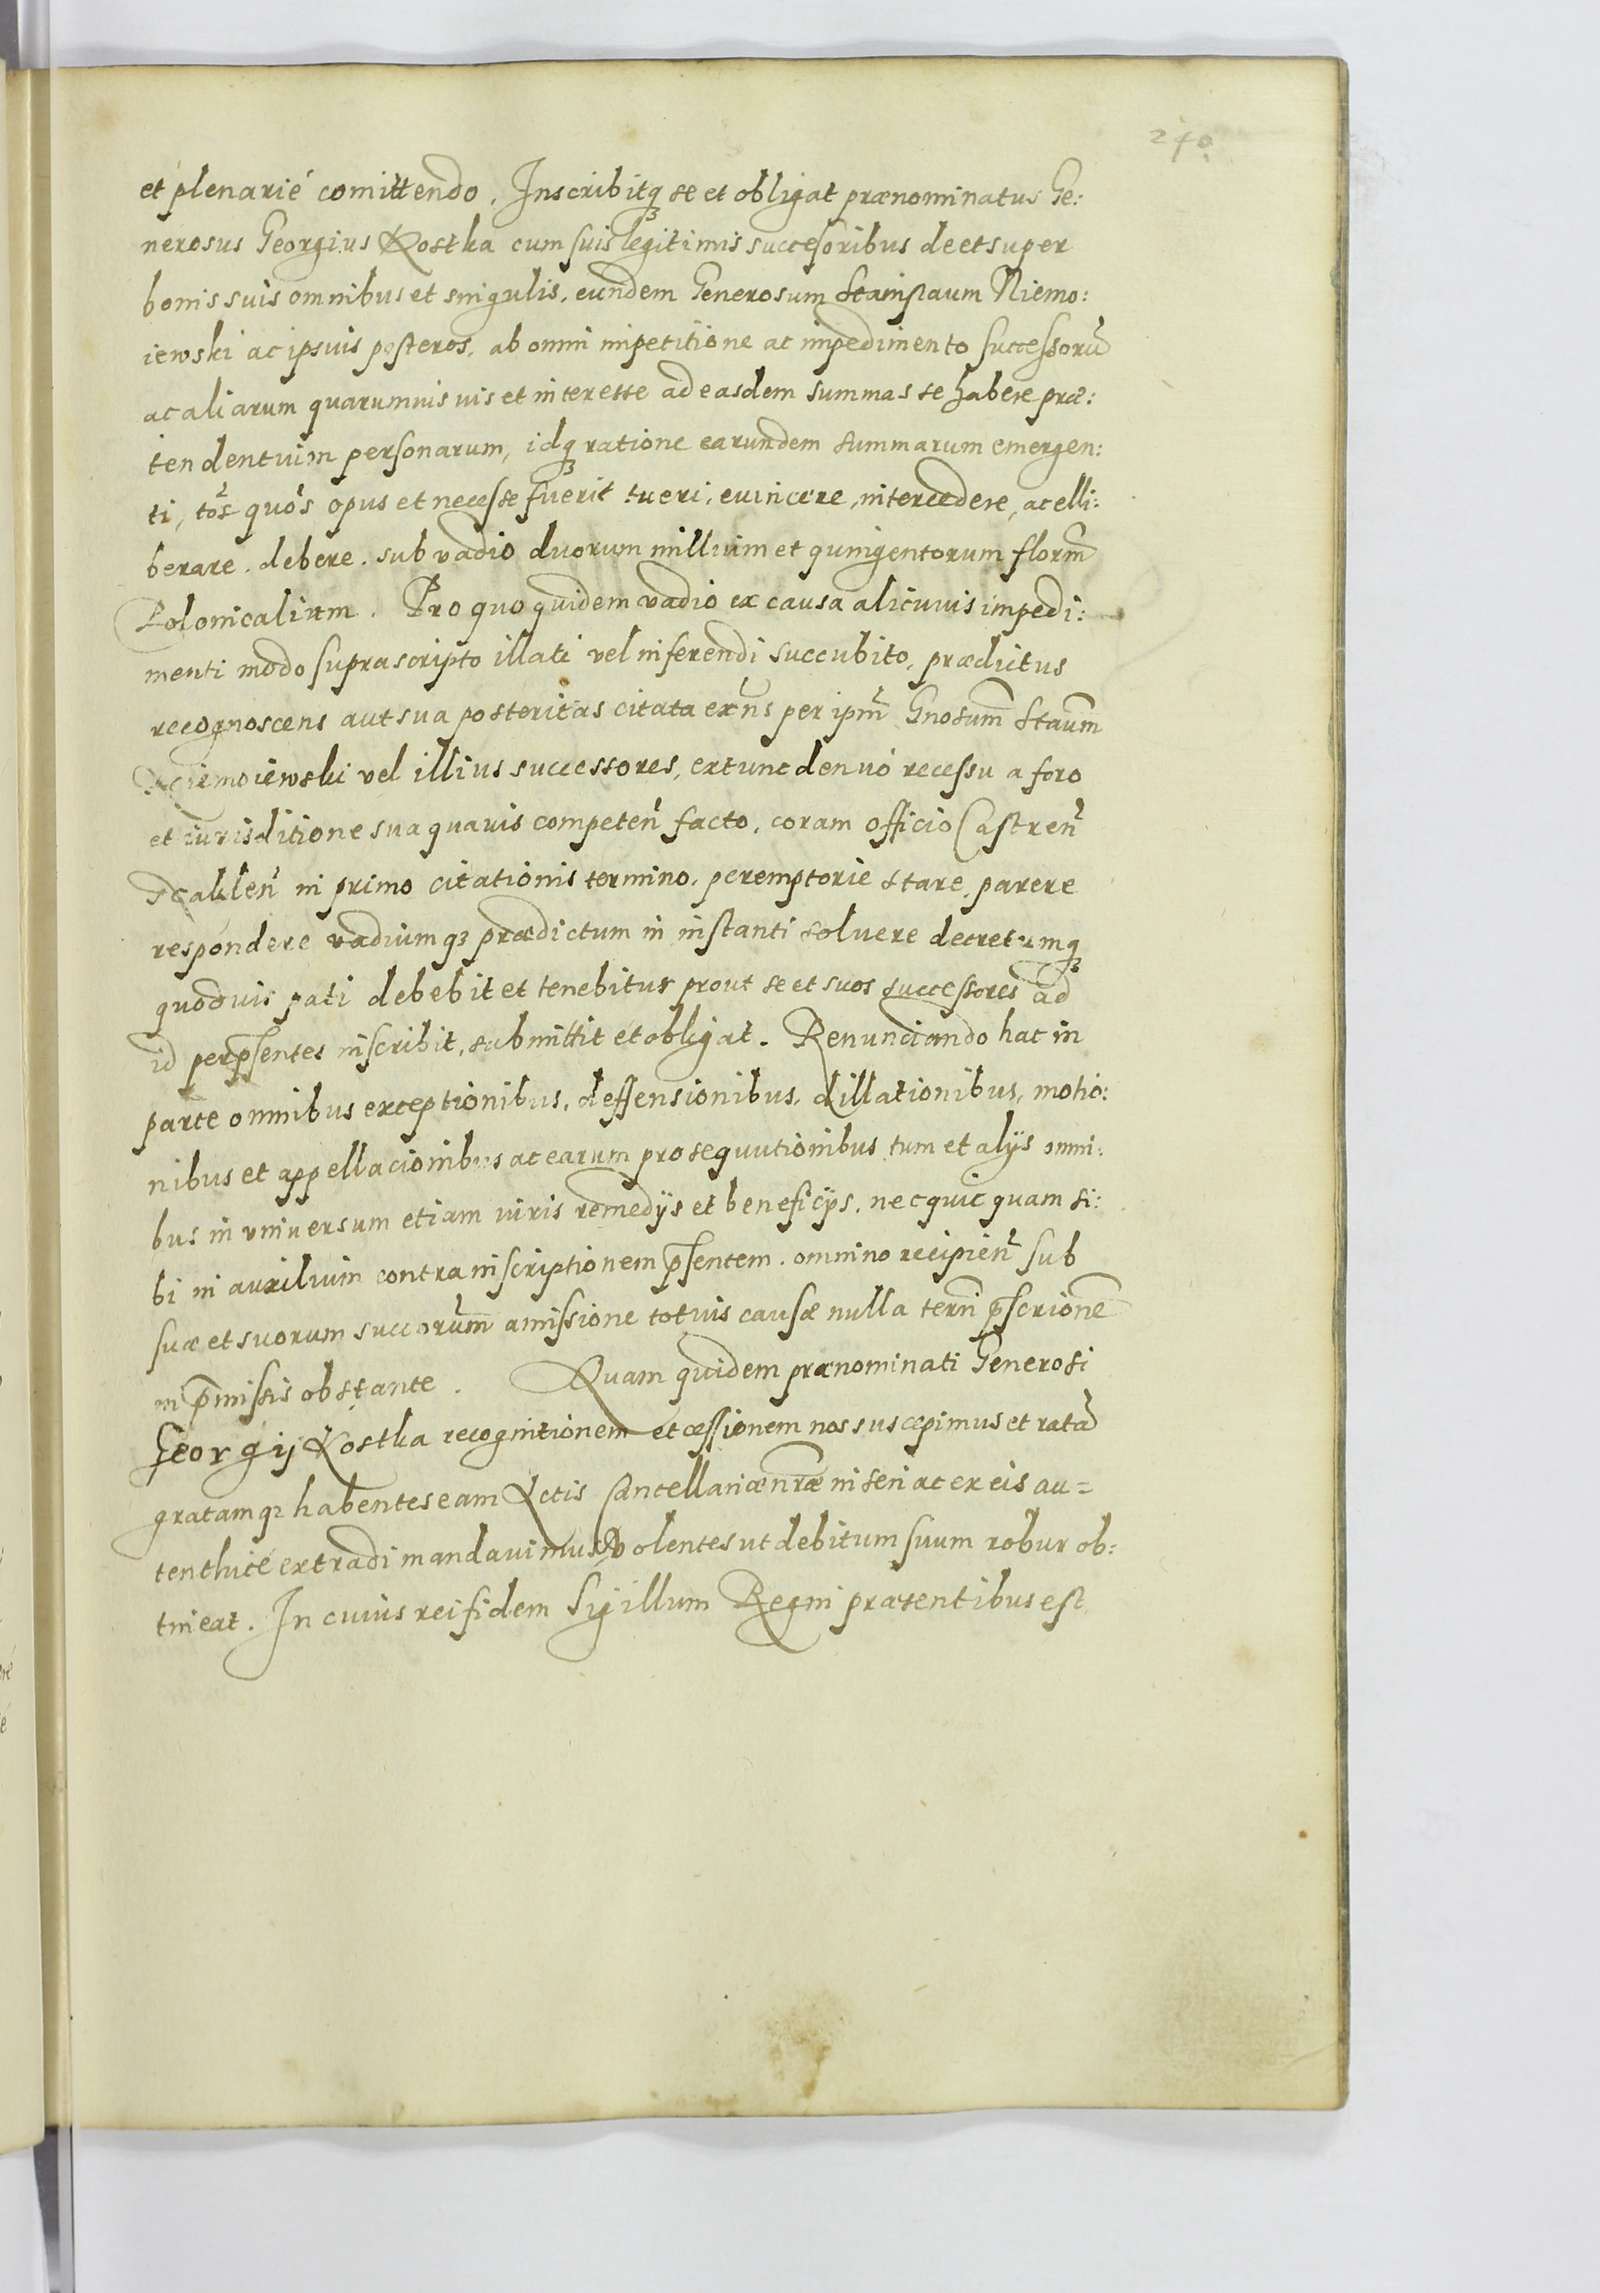 240
et plenarié comittendo. Inscribitq₃ se et obligat prænominatus Ge:
nerosus Georgius Kostka cum suis legitimis succeſoribus de et super
bonis suis omnibus et singulis, eundem Generosum Stanislaum Niemo:
iewski ac ipsius posteros, ab omni impetitione ac impedimento successorũ
ac aliarum quarumuis ius et interesse ad easdem summas se habere præ:
tendentium personarum, idq₃ ratione earundem summarum emergen:
ti, tot̃s quot̃s opus et necesse fuerit tueri, euincere, intercedere, ac elli:
berare, debere, sub vadio duorum millium et quingentorum florm̃
Polonicalium. Pro quo quidem vadio ex causa alicuius impedi:
menti modo suprascripto illati vel inferendi succubito, prædictus
recognoscens aut sua posteritas citata exñs per ipm̃ Gnosum̃ Staum̃
Niemoiewski vel illius successores, extunc denuó recessu a foro
et iurisditione sua quauis competeñ facto, coram officio Castreñ
in primo citationis termino, peremptorie stare, parere
respondere vadiumq₃ prædictum in instanti soluere decretumq₃
quoduis pati debebit et tenebitur prout se et suos successores ad
id per p̃sentes inscribit, submittit et obligat. Renunciando hac in
parte omnibus exceptionibus, deffensionibus, dillationibus, motio:
nibus et appellacionibus ac earum prosequutionibus tum et alijs omni:
bus in vniuersum etiam iuris remedijs et beneficijs, nec quicquam si:
bi in auxilium contra inscriptionem p̃sentem, omnino recipieñ sub
suæ et suorum succorum̃ amissione totius causæ nulla terrñ p̃scrionẽ
in p̃missis obstante. Quam quidem prænominati Generosi
Georgij Kostka recognitionem et cessionem nos suscepimus et ratã
gratamq₃ habentes eam Actis Cancellariæ nr̃æ inseri ac ex eis au=
tenthicé extradi mandauimus Volentes ut debitum suum robur ob:
tineat. In cuius rei fidem Sigillum Regni præsentibus est